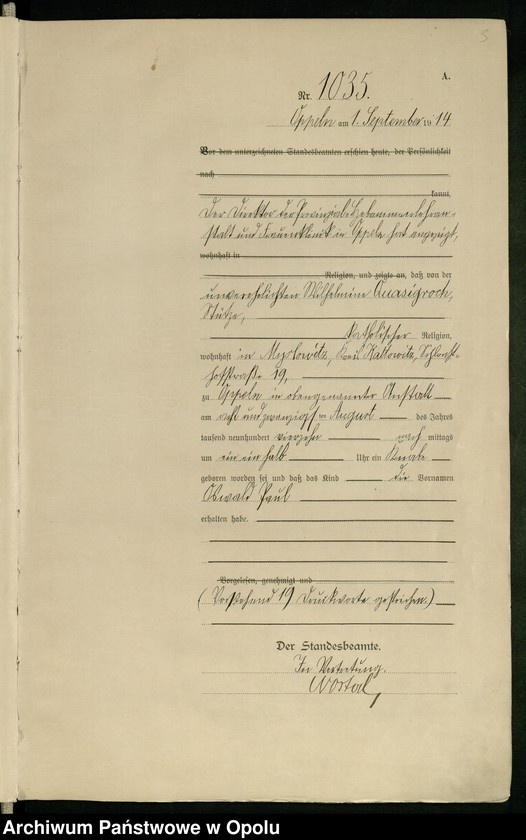 5
A.
Nr. 1035.
Oppeln am 1. September 1914
Vor dem unterzeichneten Standesbeamten erschien heute, der Persönlichkeit
nach
kannt,
Der Direktor der Provinzial-Hebammenlehran-
stalt und Frauenklinik in Oppeln hat angezeigt,
wohnhaft in
Religion, und zeigte an, daß von der
unverehelichten Wilhelmine Quasigroch,
Stütze,
katholischer Religion,
wohnhaft in Myslowitz, Kreis Kattowitz,
hofstraße 19,
zu Oppeln in obengenannter Anstalt
am acht und zwanzigsten August des Jahres
tausend neunhundert vierzehn nach mittags
um ein ein halb Uhr ein Knabe
geboren worden sei und daß das Kind die Vornamen
Oswald Paul
erhalten habe.
Vorgelesen, genehmigt und
(Vorstehend 19 Druckworte gestrichen.)
Der Standesbeamte.
In Vertretung.
Wostal
Archiwum Państwowe w Opolu